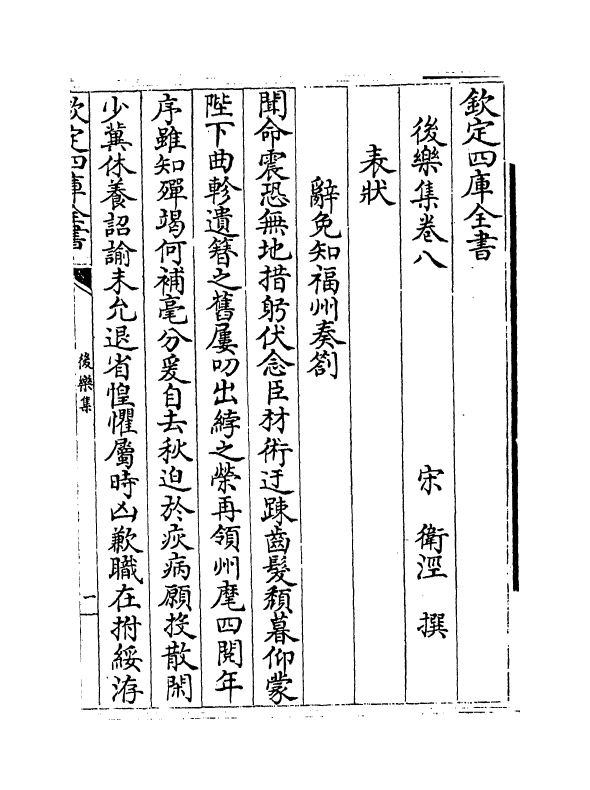 欽定四庫全書
後樂集卷八
宋 衛涇 撰
表狀
辭免知福州奏劄
聞命震恐無地措躬伏念臣材術迂踈齒髮頽暮仰蒙
陛下曲軫遺簪之舊屢叨出綍之榮再領州麾四閱年
序雖知殫竭何補毫分爰自去秋迫於疾病願投散閑
少冀休養詔諭未允退省惶懼屬時凶歉職在拊綏洊
欽定四庫全書
後樂集
一